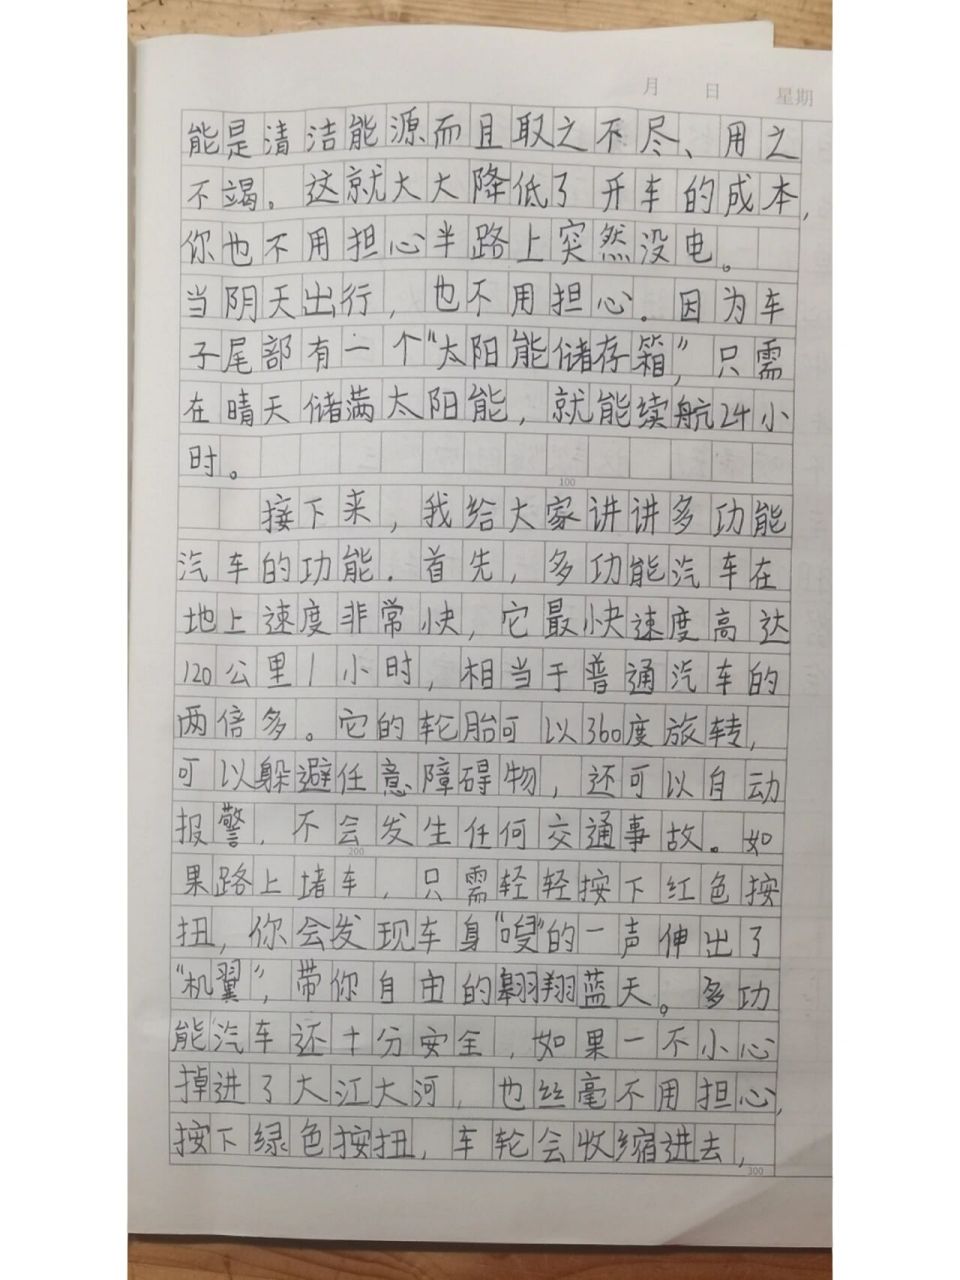 月 日 星期
能是清洁能源而且取之不尽、用之
不竭。这就大大降低了开车的成本,
你也不用担心半路上突然没电。
当阴天出行，也不用担心.因为车
子尾部有一个“太阳能储存箱”，只需
在晴天储满太阳能，就能续航24小
时。
100
接下来，我给大家讲讲多功能
汽车的功能.首先，多功能汽车在
地上速度非常快，它最快速度高达
120公里/小时，相当于普通汽车的
两倍多。它的轮胎可以360度旋转，
可以躲避任意障碍物，还可以自动
报警，不会发生任何交通事故。如
200
果路上堵车，只需轻轻按下红色按
扭，你会发现车身“嗖”的一声伸出了
“机翼”，带你自由的翱翔蓝天。多功
能汽车还十分安全，如果一不小心
掉进了大江大河，也丝毫不用担心，
按下绿色按扭，车轮会收缩进去，
300